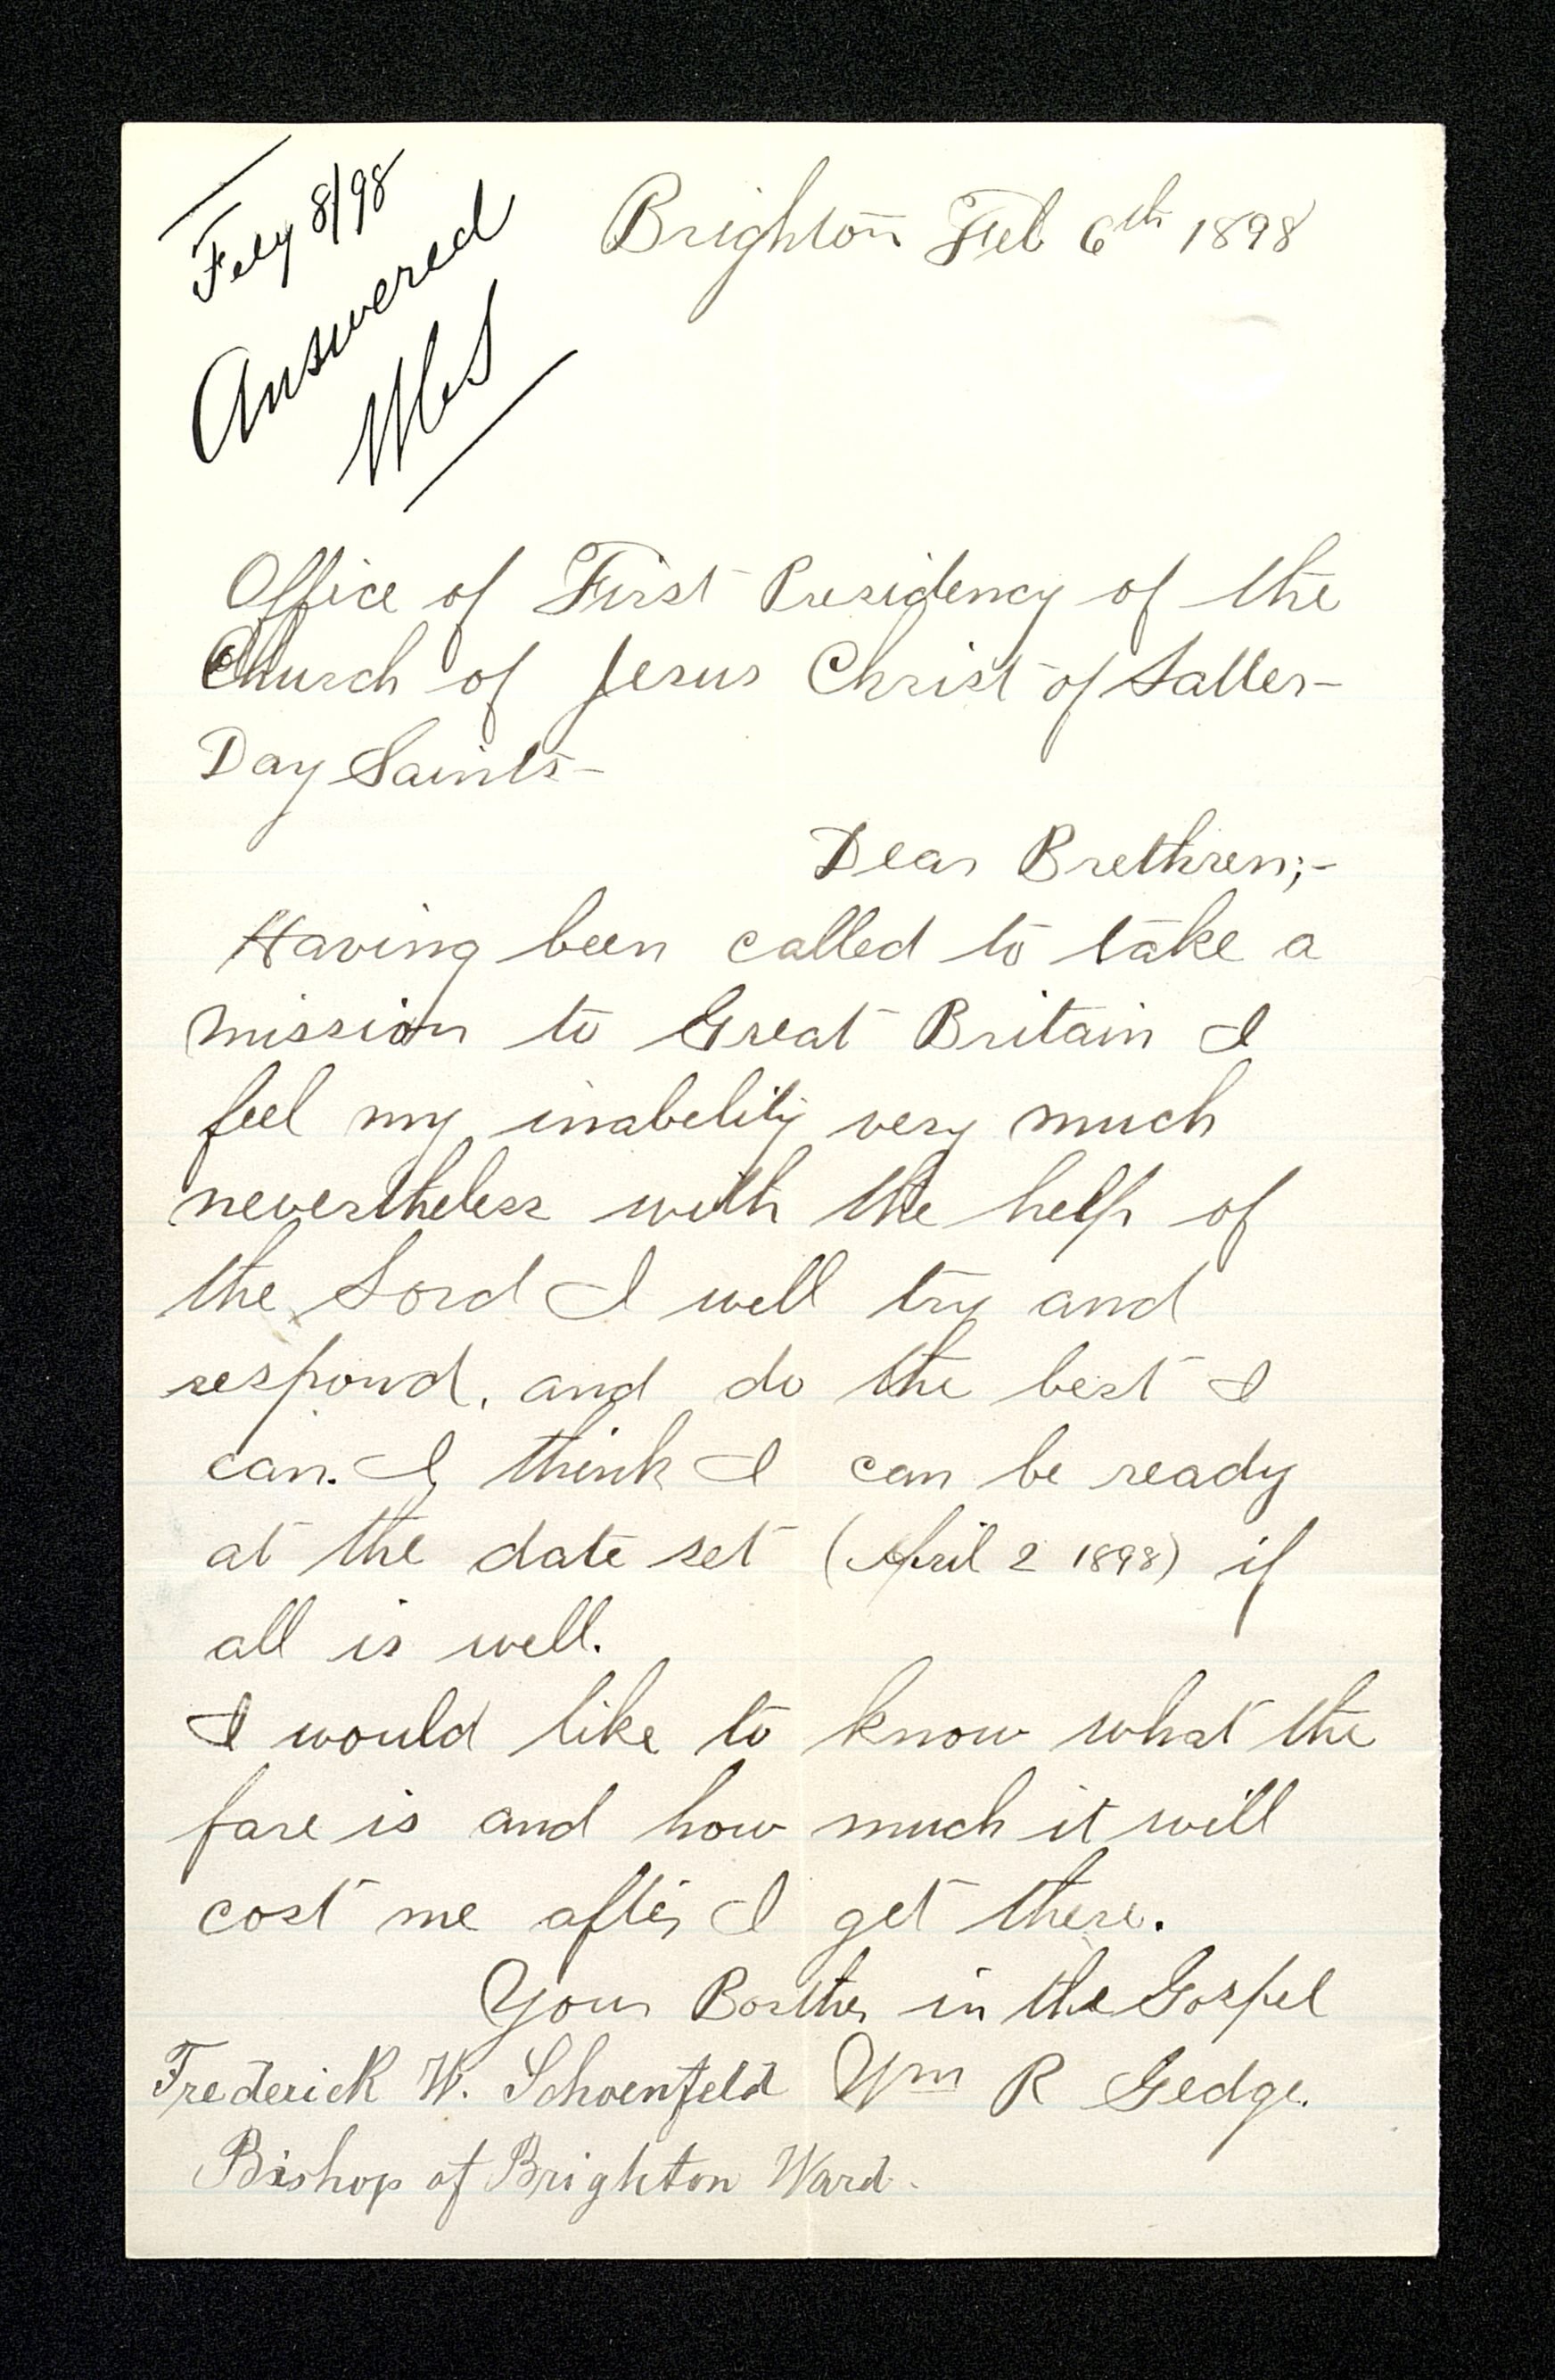 Feby 8/98
Answered
Brighton Feb 6th 1898
Office of First Presidency of the
Church of Jesus Christ of Latter-
Day Saints-
Dear Brethren;-
Having been called to take a
mission to Great Britain I
feel my inabelity very much
nevertheless with the help of
the Lord I well try and
respond, and do the best I
can. I think I can be ready
at the date set (April 2 1898) if
all is well.
I would like to know what the
fare is and how much it will
cost me after I get there.
Your Borther in the Gospel
Frederick W. Schoenfeld Wm R Gedge.
Bishop of Brighton Ward.